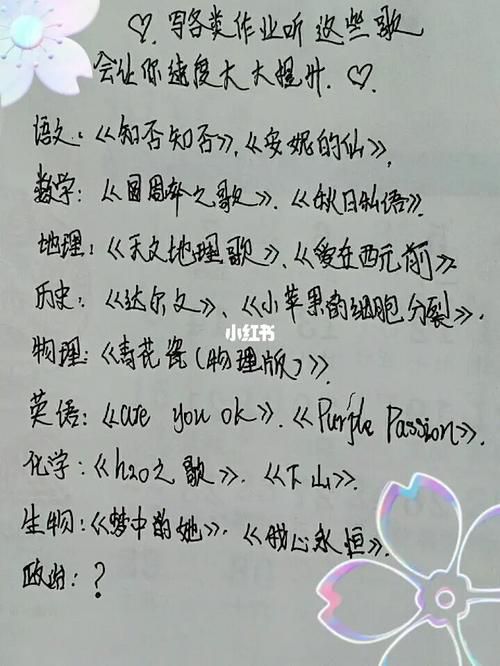 ♡. 写各类作业听这些歌
会让你速度大大提升. ♡.
语文:《知否知否》,《安妮的仙》,
数学:《圆周率之歌》.《秋日私语》.
地理:《天文地理歌》.《爱在西元前》.
历史:《达尔文》、《小苹果的细胞分裂》.
小红书
物理:《青花瓷(物理版)》.
英语:《are you ok》.《Purple Passion》.
化学:《h2o之歌》.《下山》.
生物:《梦中的她》.《我心永恒》.
政治:?